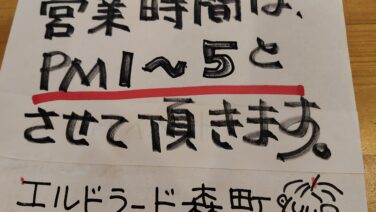 営業時間は、
PM1〜5と
させて頂きます。
エルドラード森町